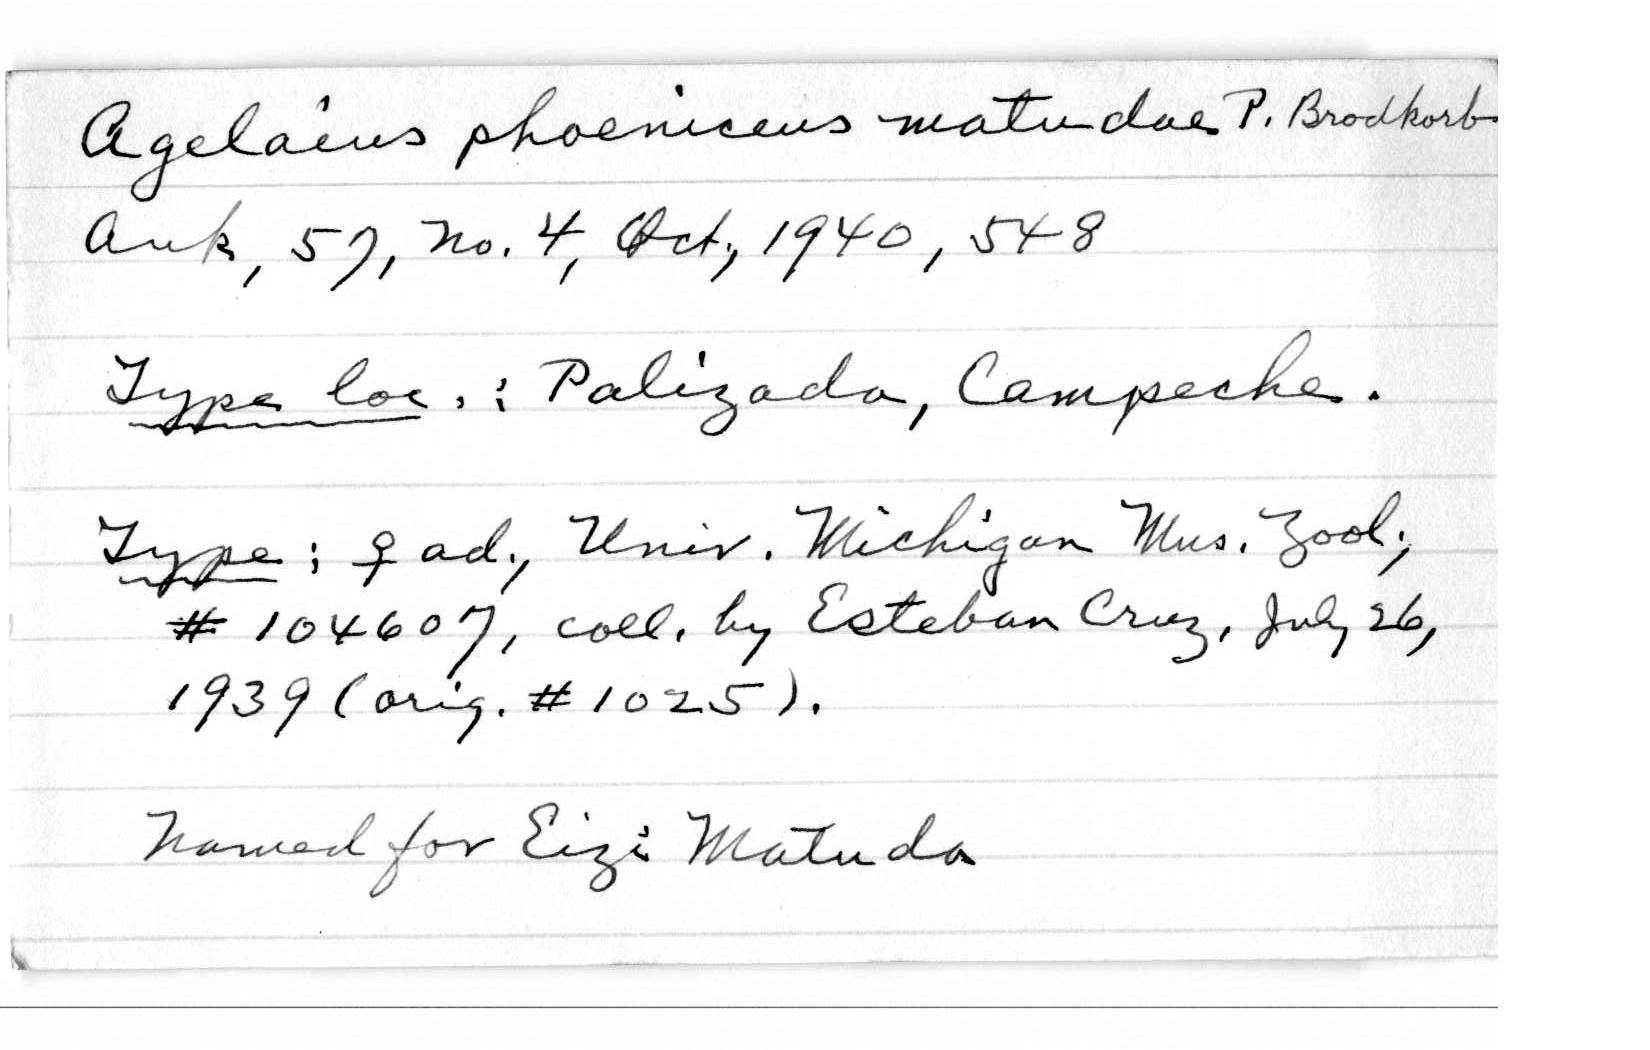 Agelaius phoeniceus matudae P. Brodkorb
Auk, 57, No. 4, Oct., 1940, 548
Type loc.: Palizada, Campeche.
Type: ♀ ad., Univ. Michigan Mus. Zool.,
# 104607, coll. by Esteban Cruz, July 26,
1939 (orig. # 1025).
Named for Eizi Matuda